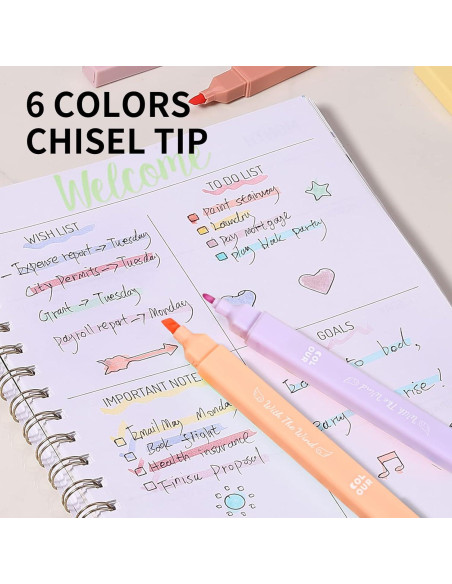 6 COLORS
CHISEL TIP
Welcome
WISH LIST
Expense report → Tuesday
City Permits → Tuesday
Grant → Tuesday
payroll report → Monday
TO DO LIST
Paint stairway
Laundry
Pay mortgage
Plan block party
GOALS
to bed,
rise!
IMPORTANT NOTE
Email May Monday
Book flight
Health insurance
Finish Proposal
COLOUR
With The Wind
COLOUR
With The Wind